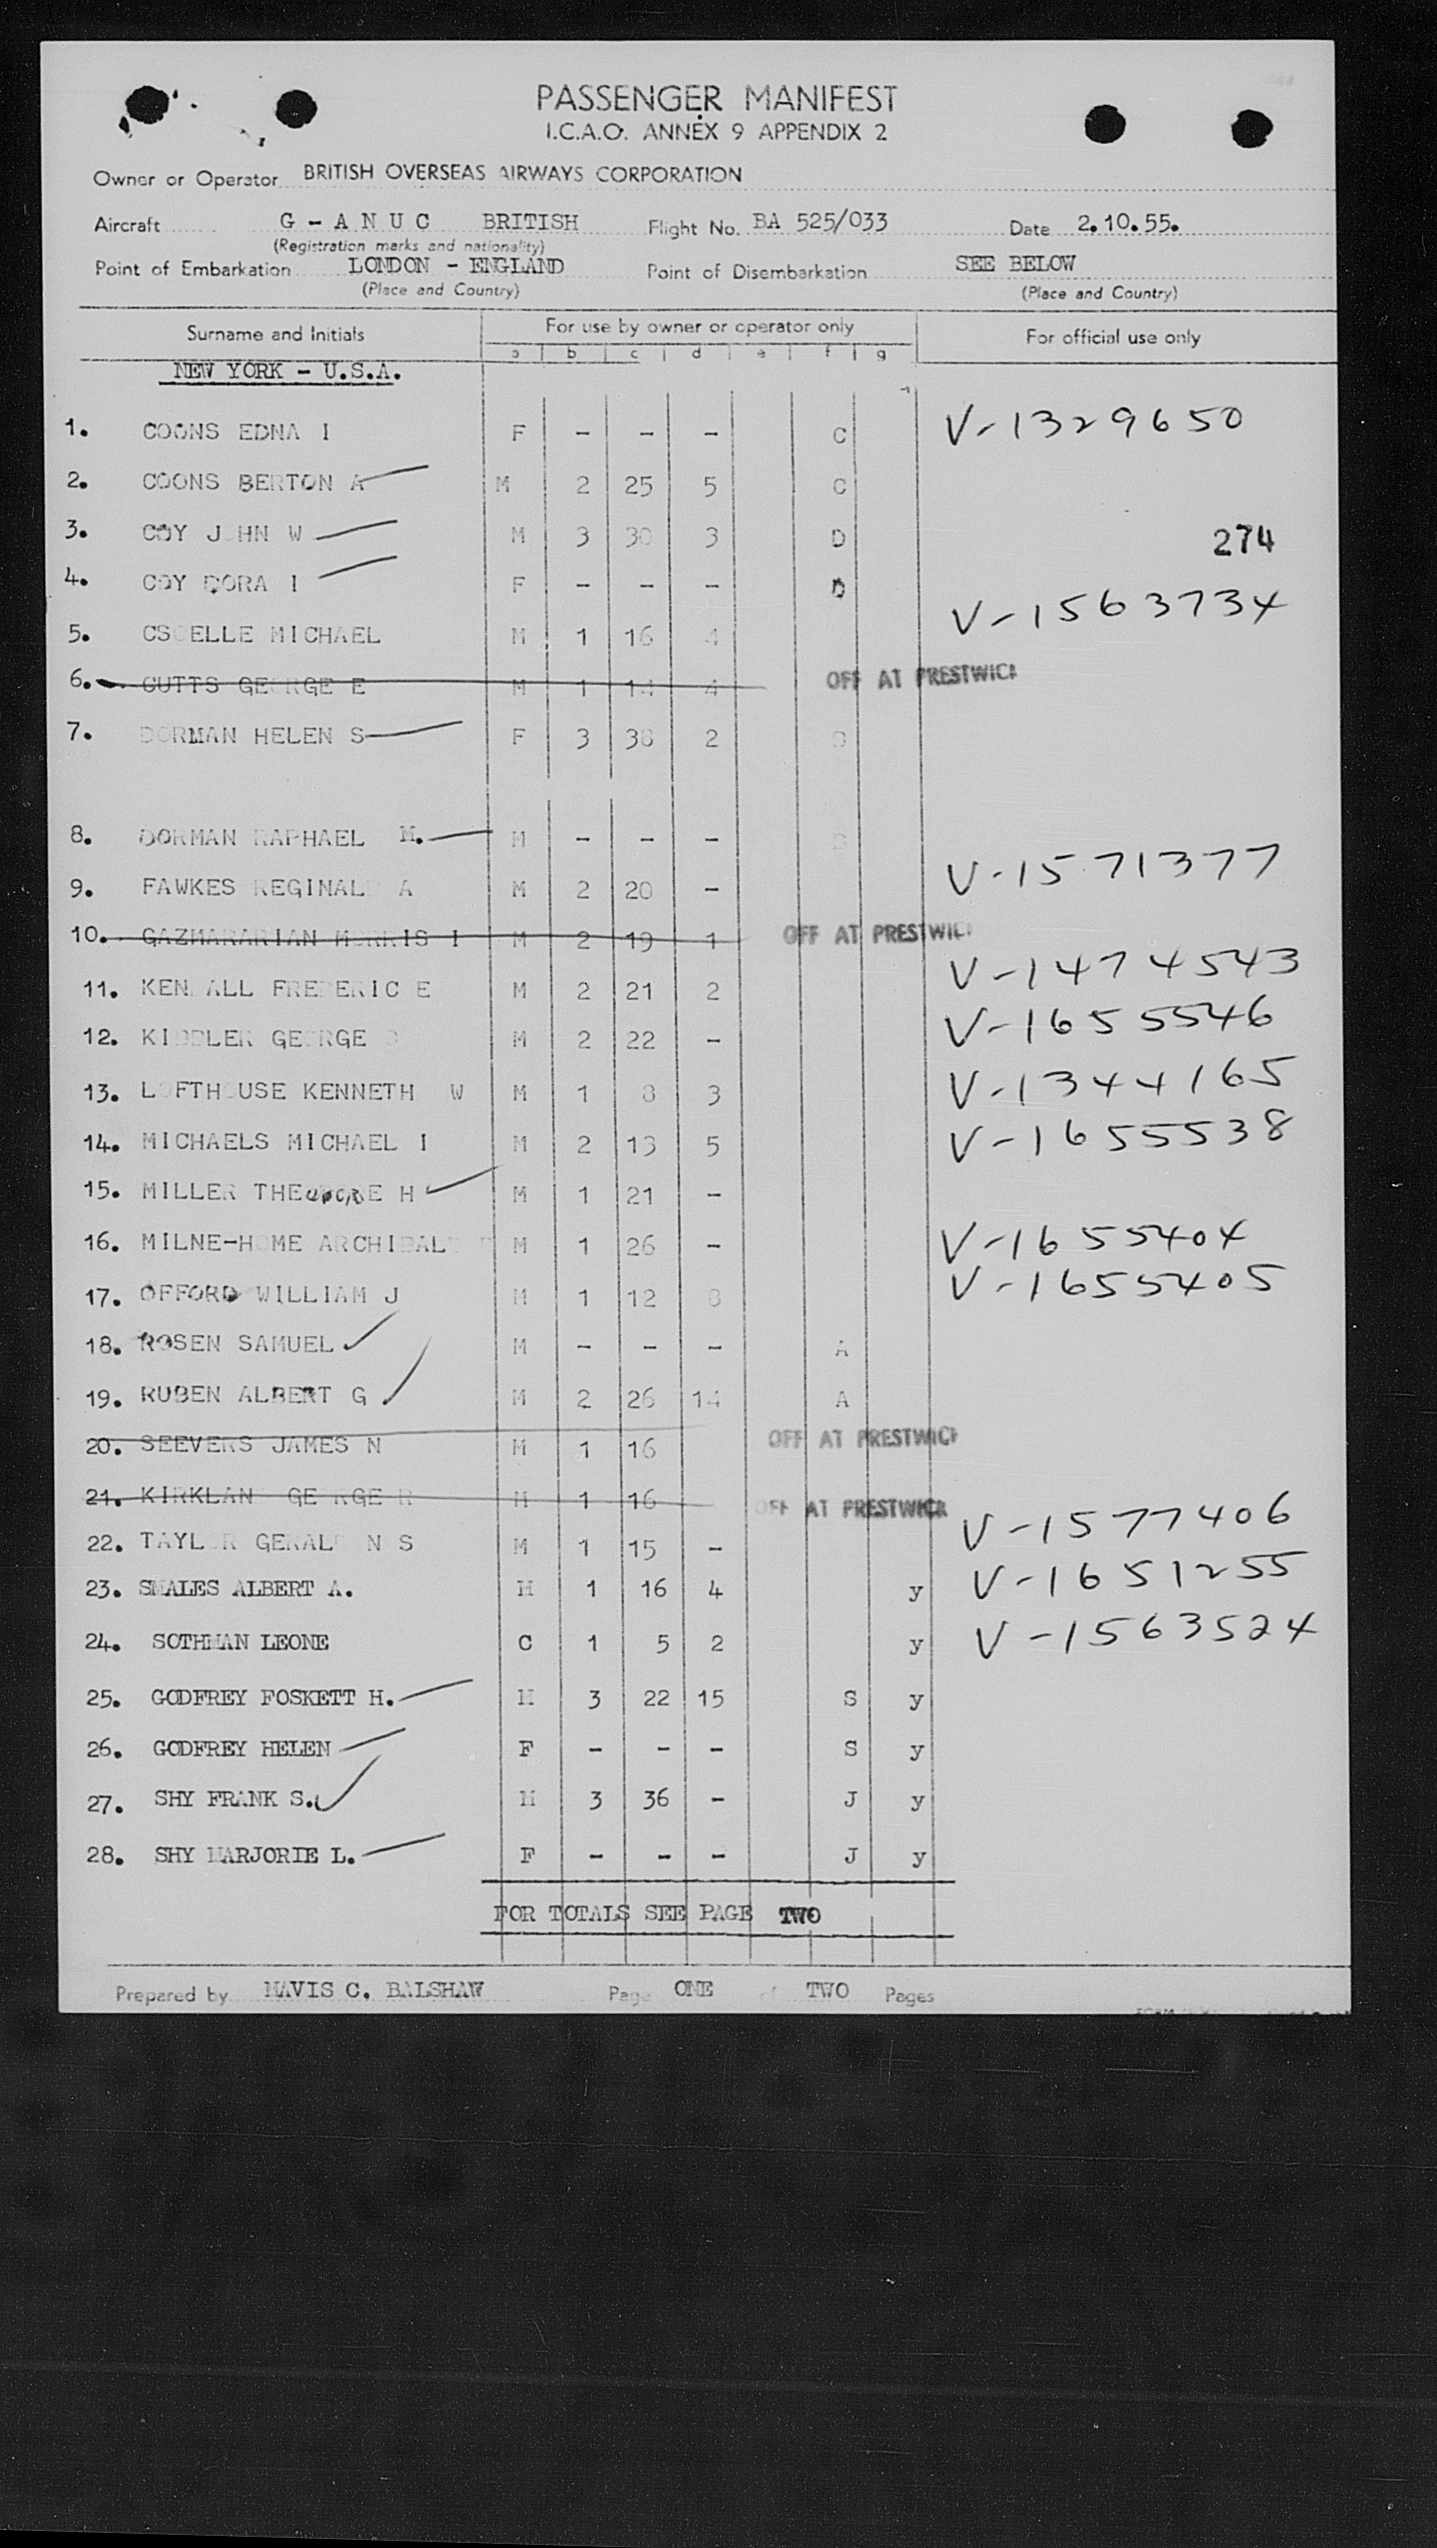 PASSENGER MANIFEST
I.C.A.O. ANNEX 9 APPENDIX 2
Owner or Operator BRITISH OVERSEAS AIRWAYS CORPORATION
Aircraft G - A N U C BRITISH Flight No. BA 525/033 Date 2.10.55.
(Registration marks and nationality)
Point of Embarkation LONDON - ENGLAND Point of Disembarkation SEE BELOW
(Place and Country) (Place and Country)
Surname and Initials For use by owner or operator only For official use only
a b c d e f g
NEW YORK - U.S.A.
1. COONS EDNA I F - - - C V-1329650
2. COONS BERTON A M 2 25 5 C
3. COY J HN W M 3 30 3 D 274
4. COY DORA I F - - - D
5. CSCELLE MICHAEL M 1 16 4 V-1563734
6. CUTTS GEORGE E M 1 14 4 OFF AT PRESTWICK
7. DORMAN HELEN S F 3 38 2
8. DORMAN RAPHAEL M. M - - -
9. FAWKES REGINAL A M 2 20 - V-1571377
10. GAZMARARIAN MORRIS I M 2 19 1 OFF AT PRESTWICK
11. KEN ALL FREDERIC E M 2 21 2 V-1474543
12. KIDDLER GEORGE M 2 22 - V-1655546
13. LOFTHOUSE KENNETH W M 1 8 3 V-1344165
14. MICHAELS MICHAEL I M 2 13 5 V-1655538
15. MILLER THEODORE H M 1 21 -
16. MILNE-HOME ARCHIBAL M 1 26 - V-1655404
17. OFFORD WILLIAM J M 1 12 8 V-1655405
18. ROSEN SAMUEL M - - - A
19. RUBEN ALBERT G M 2 26 14 A
20. SEEVERS JAMES N M 1 16 OFF AT PRESTWICK
21. KIRKLAN GEORGE R M 1 16 OFF AT PRESTWICK
22. TAYLOR GERALD N S M 1 15 - V-1577406
23. SMALES ALBERT A. M 1 16 4 y V-1651255
24. SOTHMAN LEONE C 1 5 2 y V-1563524
25. GODFREY FOSKETT H. M 3 22 15 S y
26. GODFREY HELEN F - - - S y
27. SHY FRANK S. M 3 36 - J y
28. SHY MARJORIE L. F - - - J y
FOR TOTALS SEE PAGE TWO
Prepared by MAVIS C. BALSHAW Page ONE of TWO Pages